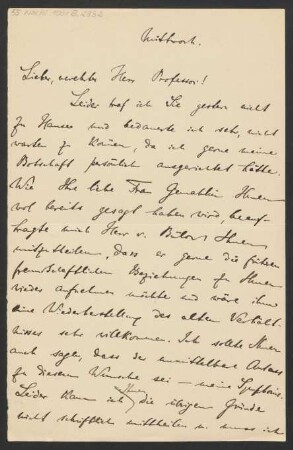 Mittwoch.
Lieber, verehrter Herr Professor!
Leider traf ich Sie gestern nicht
zu Hause und bedauerte ich sehr, nicht
warten zu können, da ich gerne meine
Botschaft persönlich ausgerichtet hätte.
Wie Ihre liebe Frau Gemahlin Ihnen
wol bereits gesagt haben wird, beauf-
tragte mich Herr v. Bülow Ihnen
mitzutheilen, dass er gerne die frühern
freundschaftlichen Beziehungen zu Ihnen
wieder aufnehmen möchte und wäre ihm
eine Wiederherstellung des alten Verhält-
nisses sehr willkommen. Ich sollte Ihnen
auch sagen, dass der unmittelbare Anlass
zu diesem Wunsche sei – meine Symphonie.
Leider kann ich Ihnen die übrigen Gründe
nicht schriftlich mittheilen u. muss ich